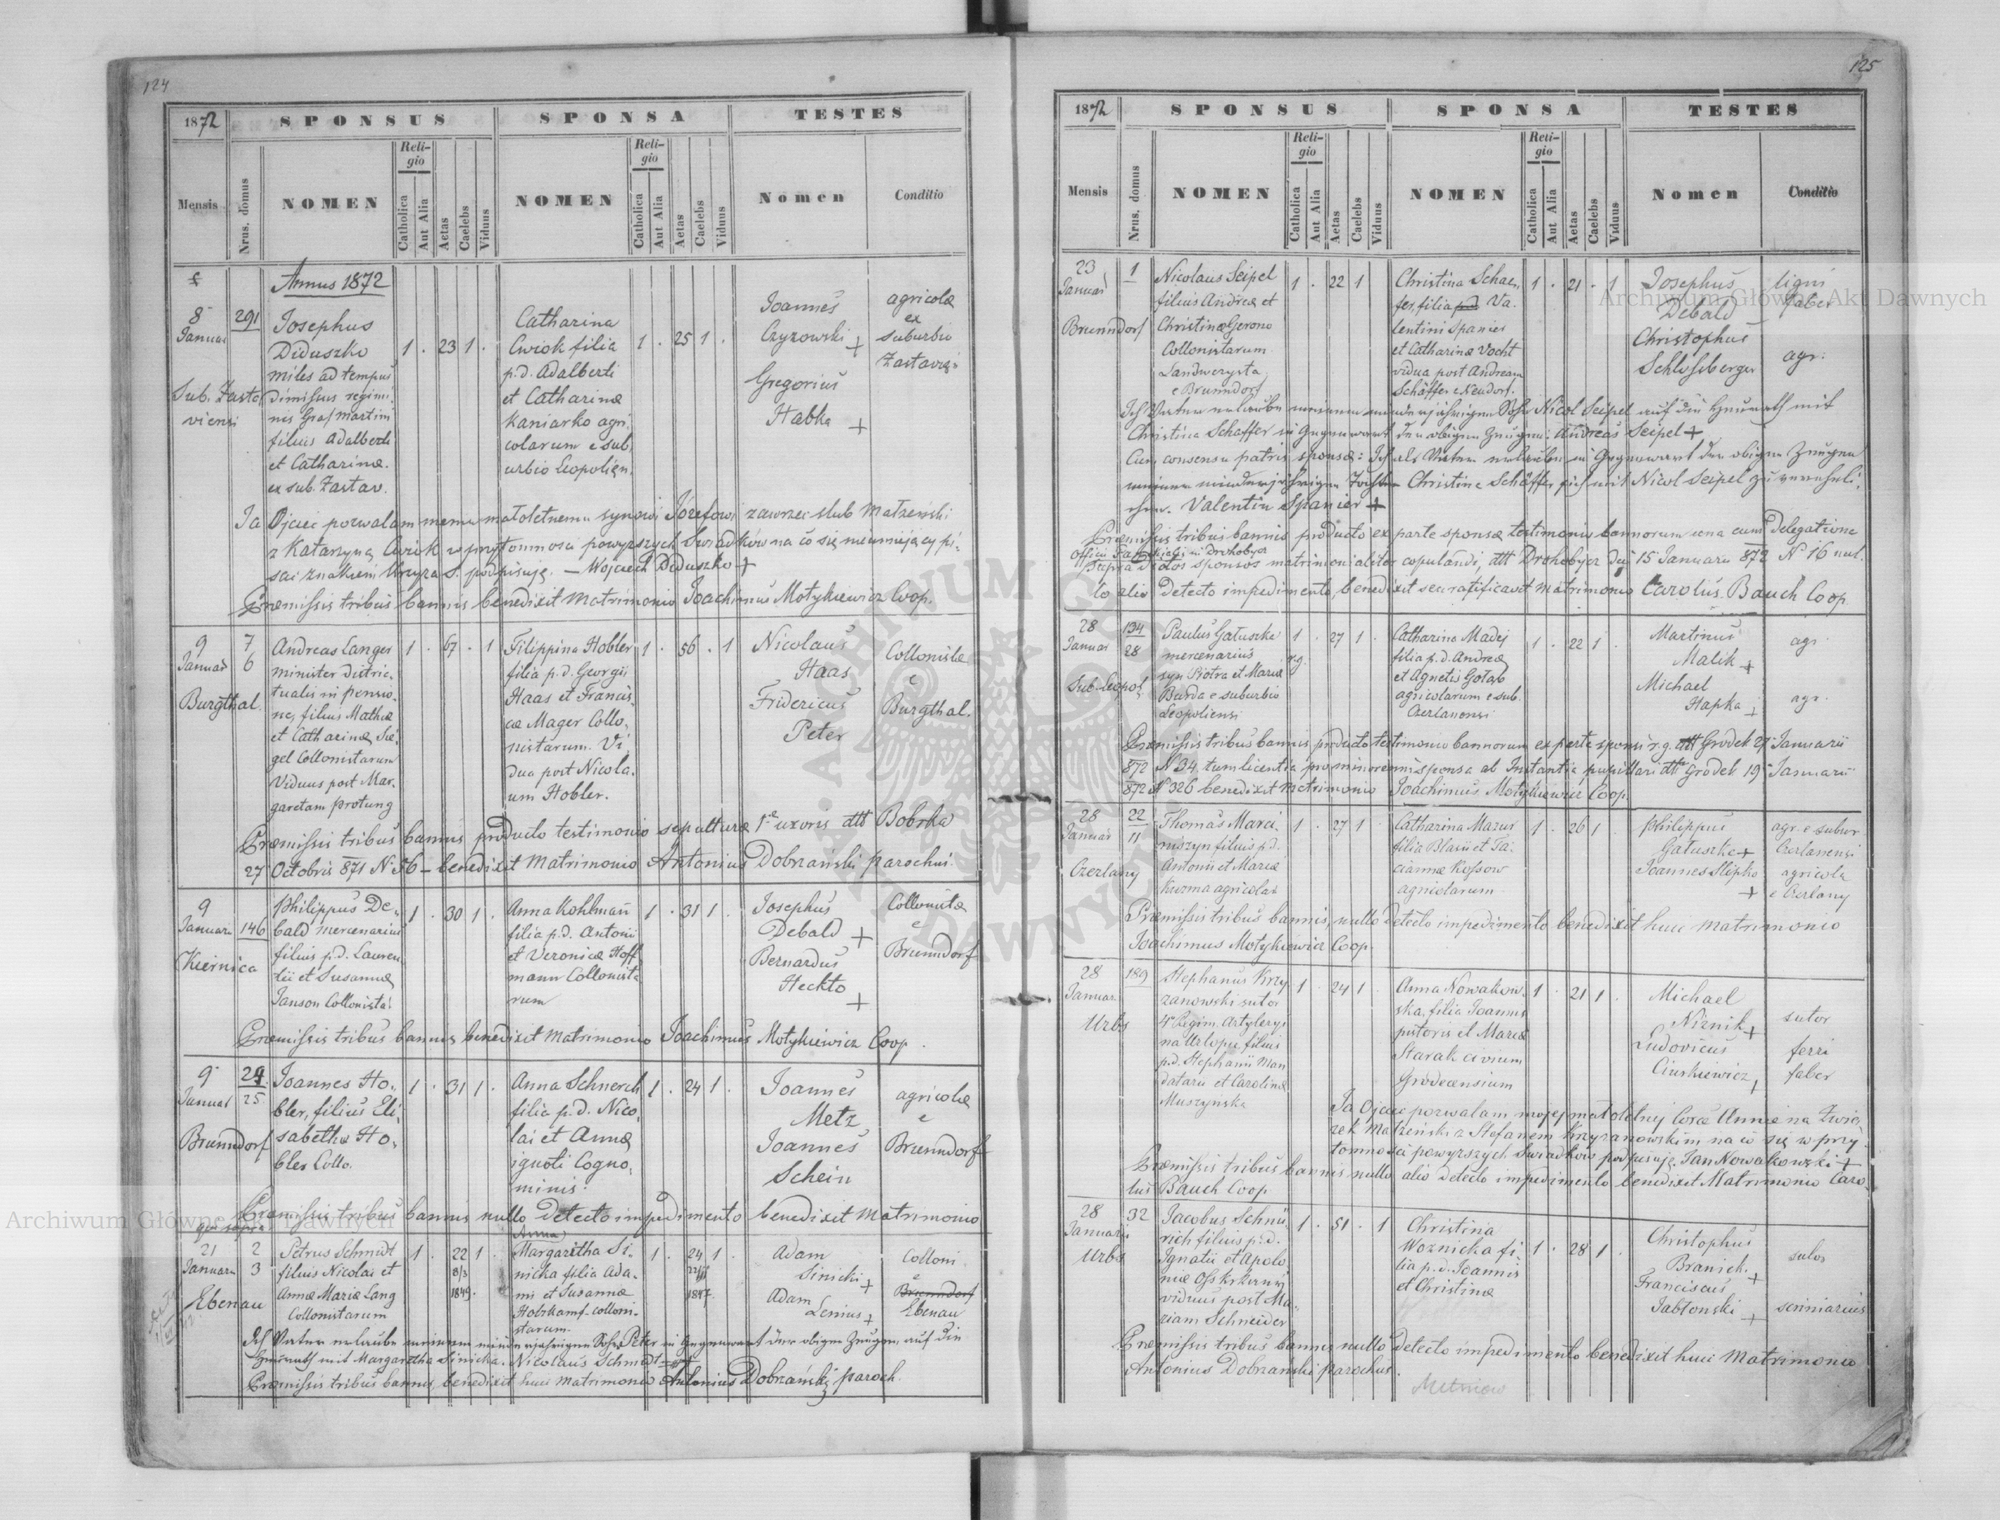 124
1872
SPONSUS
SPONSA
TESTES
Mensis
Nrus. domus
NOMEN
Religio
Catholica
Aut Alia
Aetas
Caelebs
Viduus
NOMEN
Religio
Catholica
Aut Alia
Aetas
Caelebs
Viduus
Nomen
Conditio
Annus 1872
8 Januar
Sub. Zastaviensi
291
Josephus
Diduszko
miles ad tempus
dimissus regimi-
nis Graf Martini
filius Adalberti
et Catharinæ
ex sub. Zastav.
1 . 23 1 .
Catharina
Cwiok filia
p.d. Adalberti
et Catharinæ
Kaniarko agri-
colarum e sub-
urbio Leopolien.
1 . 25 1 .
Joannes
Czyzowski +
Gregorius
Habka +
agricolæ
ex
suburbio
Zastavien:
Ja Ojciec pozwalam memu małoletnemu synowi Józefowi zawrzec slub Małzenski
z Katarzyną Cwiok w przytomnosci powyzszych Swiadków na co się nieumiejący pi-
sac znakiem Krzyza S. podpisuję. — Wójciech Diduszko +
Præmissis tribus bannis benedixit Matrimonio Joachimus Motykiewicz Coop.
9 Januar
Burgthal.
7
6
Andreas Langer
minister distric-
tualis in pensio-
ne, filius Mathiæ
et Catharinæ Sie-
gel Collonistarum
Viduus post Mar-
garetam Protung
1 . 67 . 1
Filippina Hobler
filia p.d. Georgii
Haas et Francis-
cæ Mager Collo-
nistarum. Vi-
dua post Nicola-
um Hobler.
1 . 56 . 1
Nicolaus
Haas
Fridericus
Peter
Collonistæ
e
Burgthal.
Præmissis tribus bannis producto testimonio sepulturæ 1æ uxoris dtt Bobrka
27 Octobris 871 N 56 - benedixit Matrimonio Antonius Dobrzański parochus.
9 Januar
Kiernica
146
Philippus De-
bald mercenarius
filius p.d. Lauren-
tii et Susannæ
Janson Collonistar.
1 . 30 1 .
Anna Kohlmañ
filia p.d. Antonii
et Veronicæ Hoff-
mann Collonista-
rum
1 . 31 1 .
Josephus
Debald +
Bernardus
Heckto +
Collonistæ
e
Brunndorf
Præmissis tribus bannis benedixit Matrimonio Joachimus Motykiewicz Coop.
9 Januar
Brunndorf
24
25
Joannes Ho-
bler, filius Eli-
sabethæ Ho-
bler Collo.
1 . 31 1 .
Anna Schnerch
filia p.d. Nico-
lai et Annæ
ignoti Cogno-
minis.
1 . 24 1 .
Joannes
Metz
Joannes
Schein
agricolæ
e
Brunndorf
Præmissis tribus bannis nullo detecto impedimento benedixit Matrimonio
qui supra
21
Januar
Ebenau
2
3
Petrus Schmidt
filius Nicolai et
Annæ Mariæ Lang
Collonistarum
1 . 22 1 .
8/3
1849.
Anna
Margaritha Si-
nicka filia Ada-
mi et Susannæ
Hobrkamf colloni-
starum
1 . 24 1 .
1847.
Adam
Sinicki +
Adam
Lenius +
Colloni.
e
Brunndorf
Ebenau
Ich Vater erlaube meinem minderjährigen Sohn Peter in Gegenwart der obigen Zeugen auf die
Heurath mit Margaretha Sinicka. Nicolaus Schmidt
Præmissis tribus bannis, benedixit huic Matrimonio Antonius Dobrzański paroch.
125
1872
SPONSUS
SPONSA
TESTES
Mensis
Nrus. domus
NOMEN
Religio
Catholica
Aut Alia
Aetas
Caelebs
Viduus
NOMEN
Religio
Catholica
Aut Alia
Aetas
Caelebs
Viduus
Nomen
Conditio
23
Januar
Brunndorf
1
Nicolaus Seipel
filius Andreæ et
Christinæ Gerono
Collonistarum
Landwerysta
e Brunndorf
1 . 22 1
Christina Schaef-
fer, filia Va-
lentini Spanier
et Catharinæ Vocht
vidua post Andream
Schäffer e Neudorf.
1 . 21 . 1
Josephus
Debald
Christophus
Schlosberger
ligni
faber
agr.
Ich Vater erlaube meinem minderjährigen Sohn Nicol Seipel auf die Heurath mit
Christina Schaffer in Gegenwart der obigen Zeugen: Andreas Seipel +
Cum consensu patris sponsæ: Ich als Vater erlaube in Gegenwart der obigen Zeugen
meiner minderjährigen Tochter Christina Schäffer sich mit Nicol Seipel zu vereheli-
chen. Valentin Spanier +
Præmissis tribus bannis producto ex parte sponsæ testimonio bannorum una cum delegatione
officii Parochialis in Drohobycz
supra dictos sponsos matrimonialiter copulandi, dtt Drohobycz die 15 Januarii 872 N 16 nul-
lo alio detecto impedimento, benedixit seu ratificavit Matrimonio Carolus Bauch Coop.
28
Januar
Sub-Leopol.
134
28
Paulus Gałuszka
mercenarius
syn Piotra et Mariæ
Burda e suburbio
Leopoliensi
1 . 27 1 .
r.g.
Catharina Madej
filia p.d. Andreæ
et Agnetis Gołąb
agricolarum e sub.
Czerlanensi
1 . 22 1 .
Martinus
Malik +
Michael
Hapka +
agr.
agr.
Præmissis tribus bannis, producto testimonio bannorum ex parte sponsi r.g. dtt Grodek 27 Januarii
872 N 34. tum licentia pro minorenni sponsa ab Instantia pupillari dtt Grodek 19 Januarii
872 N 326 benedixit Matrimonio Joachimus Motykiewicz Coop.
28
Januar
Czerlany
22
11
Thomas Marci-
niszyn filius p.d.
Antonii et Mariæ
Kuzma agricolar.
1 . 27 1 .
Catharina Mazur
filia Blasii et Ta-
cianæ Kossow
agricolarum
1 . 26 1 .
Philippus
Gałuszka +
Joannes Slipko
+
agr. e subur
Czerlanensi
agricola
e Czerlany
Præmissis tribus bannis, nullo detecto impedimento benedixit huic Matrimonio
Joachimus Motykiewicz Coop.
28
Januar
Urbs
189
Stephanus Krzy-
zanowski sutor
4 Regim. Artyleryi
na Urlopie, filius
p.d. Stephanii Man-
datarii et Carolinæ
Muszyńska
1 . 24 1 .
Anna Nowakow-
ska, filia Joannis
pistoris et Mariæ
Starak civium
Grodecensium
1 . 21 1 .
Michael
Niznik +
Ludovicus
Ciurkiewicz +
sutor
ferri
faber
Ja Ojciec pozwalam mojej małoletniej Corce Annie na Zwią-
zek Małzenski z Stefanem Krzyzanowskim na co się w przy-
tomnosci powyzszych Swiadków podpisuję. Jan Nowakowski +
Præmissis tribus bannis nullo alio detecto impedimento benedixit Matrimonio Caro-
lus Bauch Coop
28
Januarii
Urbs
32
Jacobus Schnü-
rich filius p.d.
Ignatii et Apolo-
niæ
viduus post Ma-
riam Schneider
1 . 51 . 1
Christina
Woznicka fi-
lia p.d. Joannis
et Christinæ
1 . 28 1 .
Christophus
Branich +
Franciscus
Jabłonski +
sutor
scriniarius
Præmissis tribus bannis nullo detecto impedimento benedixit huic Matrimonio
Antonius Dobrzański parochus.
Archiwum Główne Akt Dawnych
Archiwum Główne Akt Dawnych